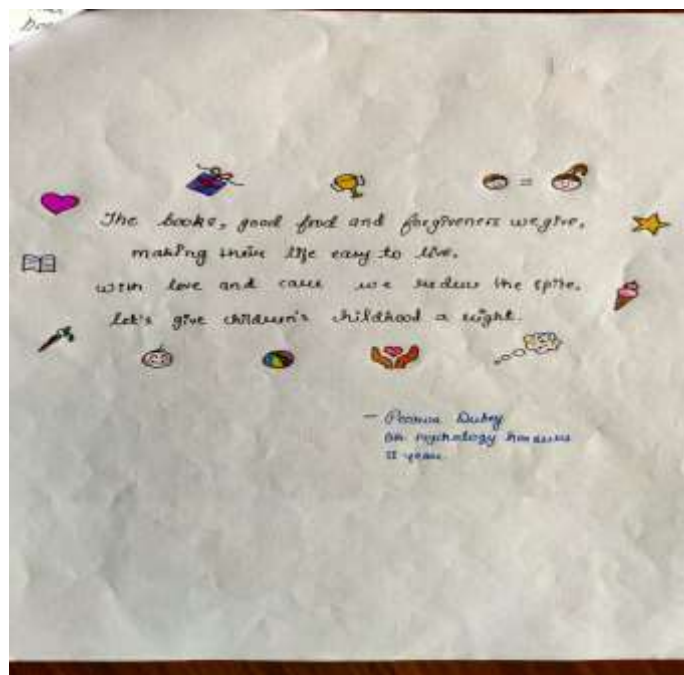 The books, good food and forgiveness we give,
making their life easy to live.
with love and care we reduce the spite,
let's give children's childhood a right.
- Dubey
BA psychology honours
II year